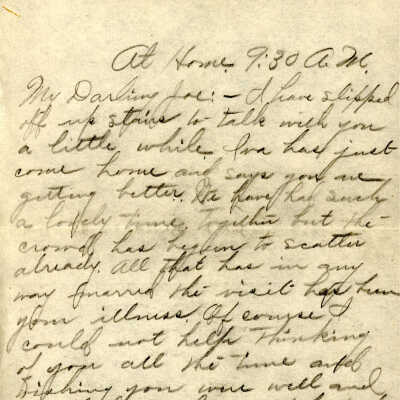 At Home. 9:30 A.M.
My Darling Joe:- I have slipped
off up stairs to talk with you
a little while. Iva has just
come home and says you are
getting better. We have had such
a lovely time together but the
crowd has begun to scatter
already. All that has in any
way marred the visit has been
your illness. Of course I
could not help thinking
of you all the time and
wishing you were well and